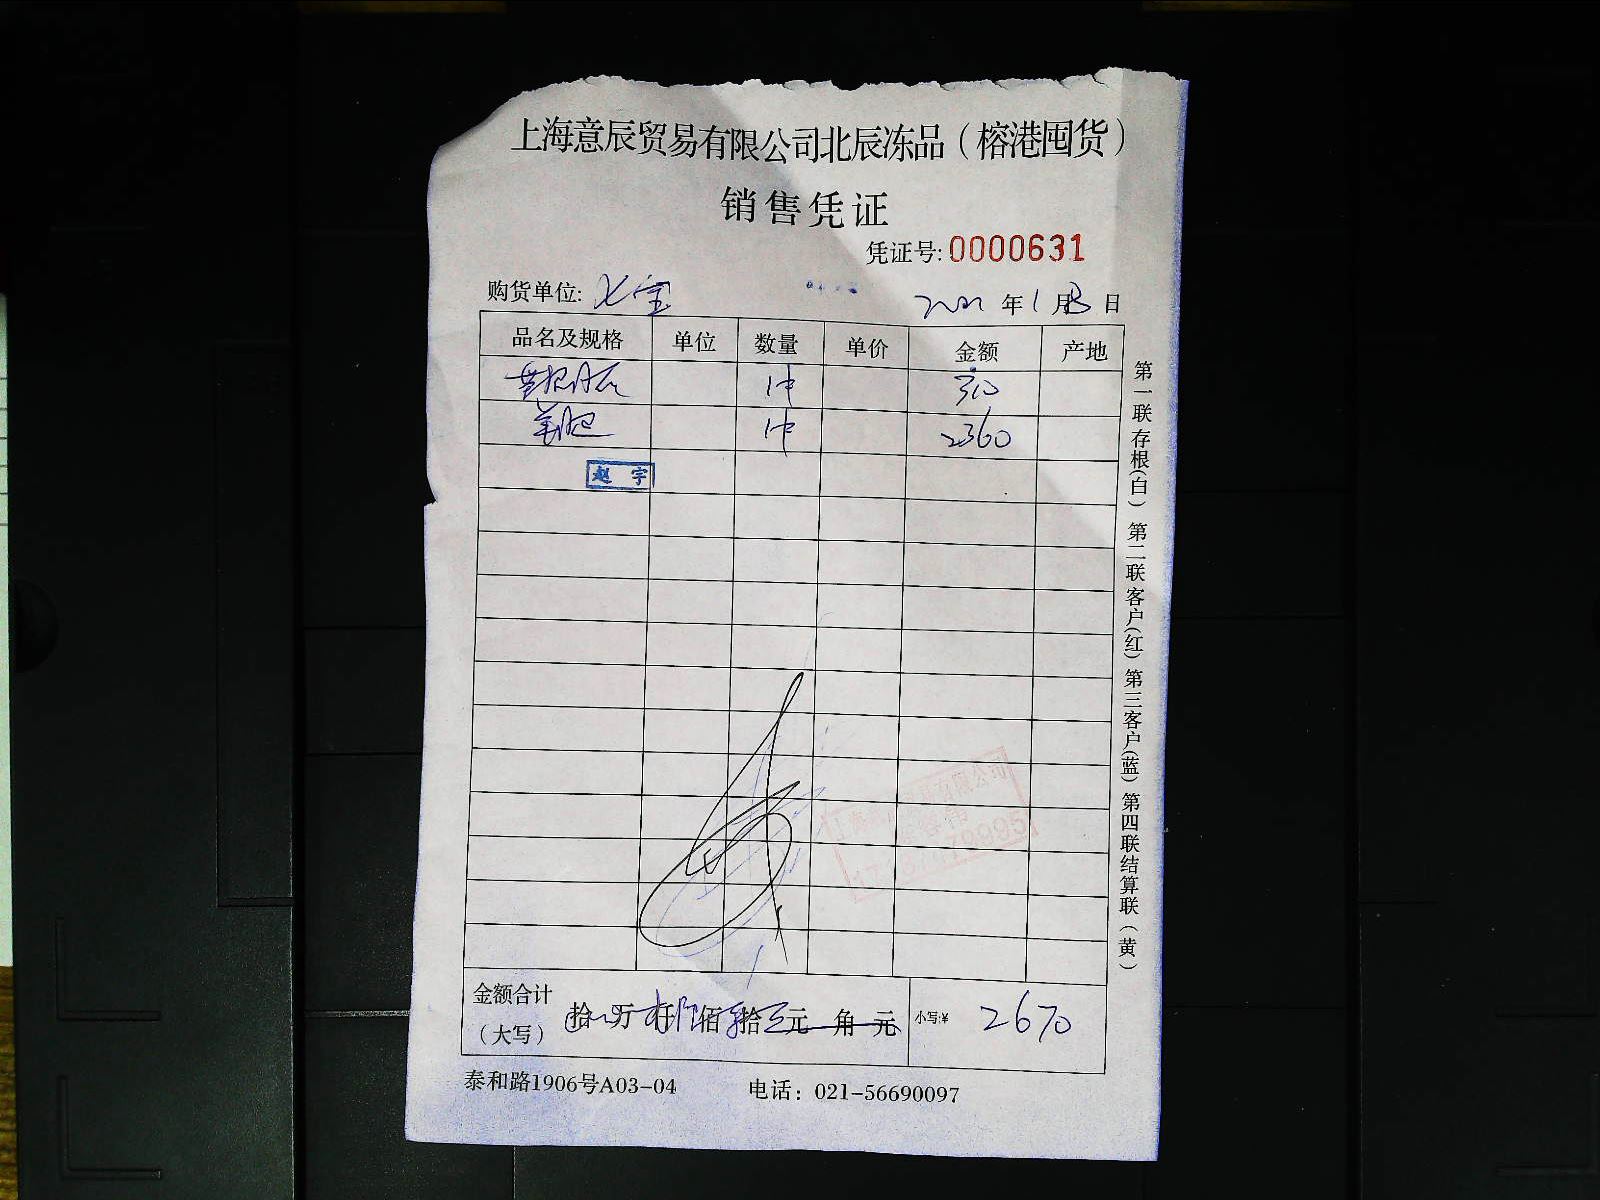 上海意辰贸易有限公司北辰冻品（榕港囤货）
销售凭证
凭证号: 0000631
购货单位: 七宝 年 1 月 日
品名及规格 单位 数量 单价 金额 产地
1件 310
1件 2360
赵宇
金额合计（大写） 拾 万 仟 佰 拾 元 角 元 小写:¥ 2670
泰和路1906号A03-04 电话：021-56690097
第一联存根(白) 第二联客户(红) 第三客户(蓝) 第四联结算联（黄）